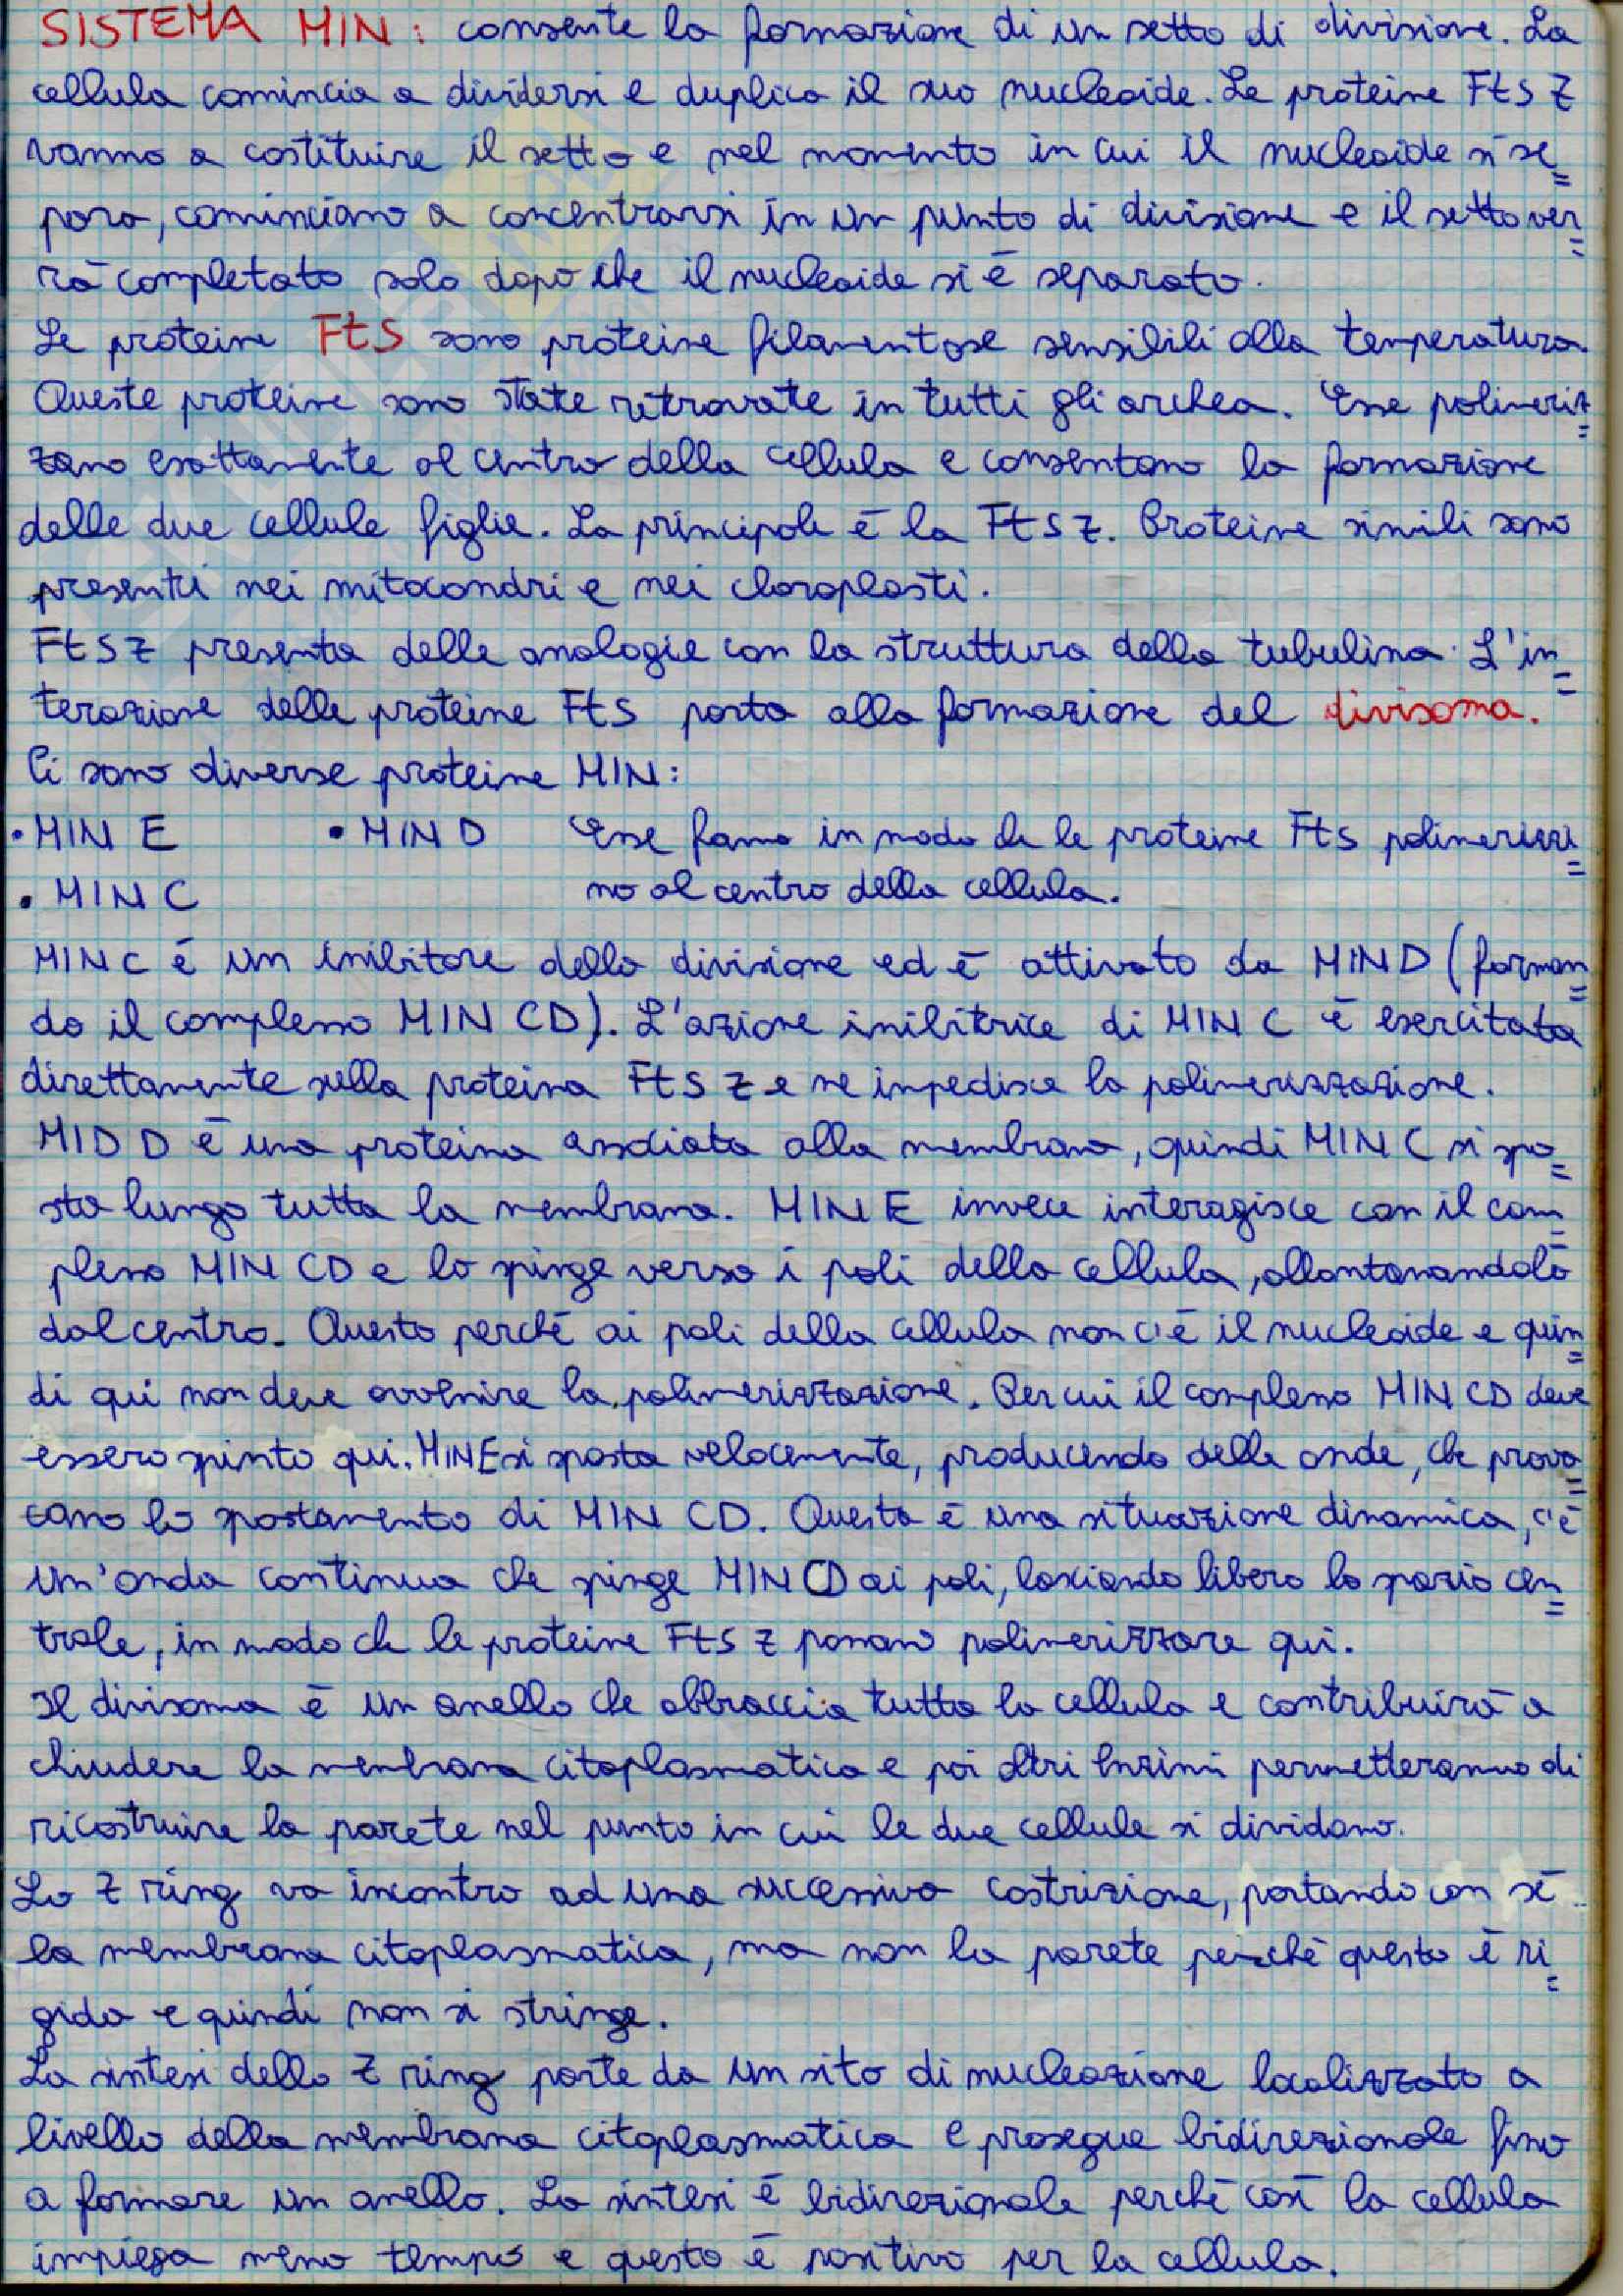 SISTEMA MIN: consente la formazione di un setto di divisione. La
cellula comincia a dividersi e duplica il suo nucleoide. Le proteine FtS Z
vanno a costituire il setto e nel momento in cui il nucleoide si se=
para, cominciano a concentrarsi in un punto di divisione e il setto ver=
rà completato solo dopo che il nucleoide si è separato.
Le proteine FtS sono proteine filamentose sensibili alla temperatura.
Queste proteine sono state ritrovate in tutti gli archea. Esse polimeriz=
zano esattamente al centro della cellula e consentono la formazione
delle due cellule figlie. La principale è la FtS Z. Proteine simili sono
presenti nei mitocondri e nei cloroplasti.
FtS Z presenta delle analogie con la struttura della tubulina. L'in=
terazione delle proteine FtS porta alla formazione del divisoma.
Ci sono diverse proteine MIN:
• MIN E • MIN D Esse fanno in modo che le proteine FtS polimerizzi=
• MIN C no al centro della cellula.
MIN C è un inibitore della divisione ed è attivato da MIN D (forman=
do il complesso MIN CD). L'azione inibitrice di MIN C è esercitata
direttamente sulla proteina FtS Z e ne impedisce la polimerizzazione.
MID D è una proteina associata alla membrana, quindi MIN C si spo=
sta lungo tutta la membrana. MIN E invece interagisce con il com=
plesso MIN CD e lo spinge verso i poli della cellula, allontanandolo
dal centro. Questo perché ai poli della cellula non c'è il nucleoide e quin=
di qui non deve avvenire la polimerizzazione. Per cui il complesso MIN CD deve
essere spinto qui. MIN E si sposta velocemente, producendo delle onde, che provo=
cano lo spostamento di MIN CD. Questa è una situazione dinamica, c'è
un'onda continua che spinge MIN CD ai poli, lasciando libero lo spazio cen=
trale, in modo che le proteine FtS Z possano polimerizzare qui.
Il divisoma è un anello che abbraccia tutta la cellula e contribuirà a
chiudere la membrana citoplasmatica e poi altri enzimi permetteranno di
ricostruire la parete nel punto in cui le due cellule si dividono.
Lo Z ring va incontro ad una successiva costrizione, portando con sé
la membrana citoplasmatica, ma non la parete perché questa è ri=
gida e quindi non si stringe.
La sintesi dello Z ring parte da un sito di nucleazione localizzato a
livello della membrana citoplasmatica e prosegue bidirezionale fino
a formare un anello. La sintesi è bidirezionale perché così la cellula
impiega meno tempo e questo è positivo per la cellula.